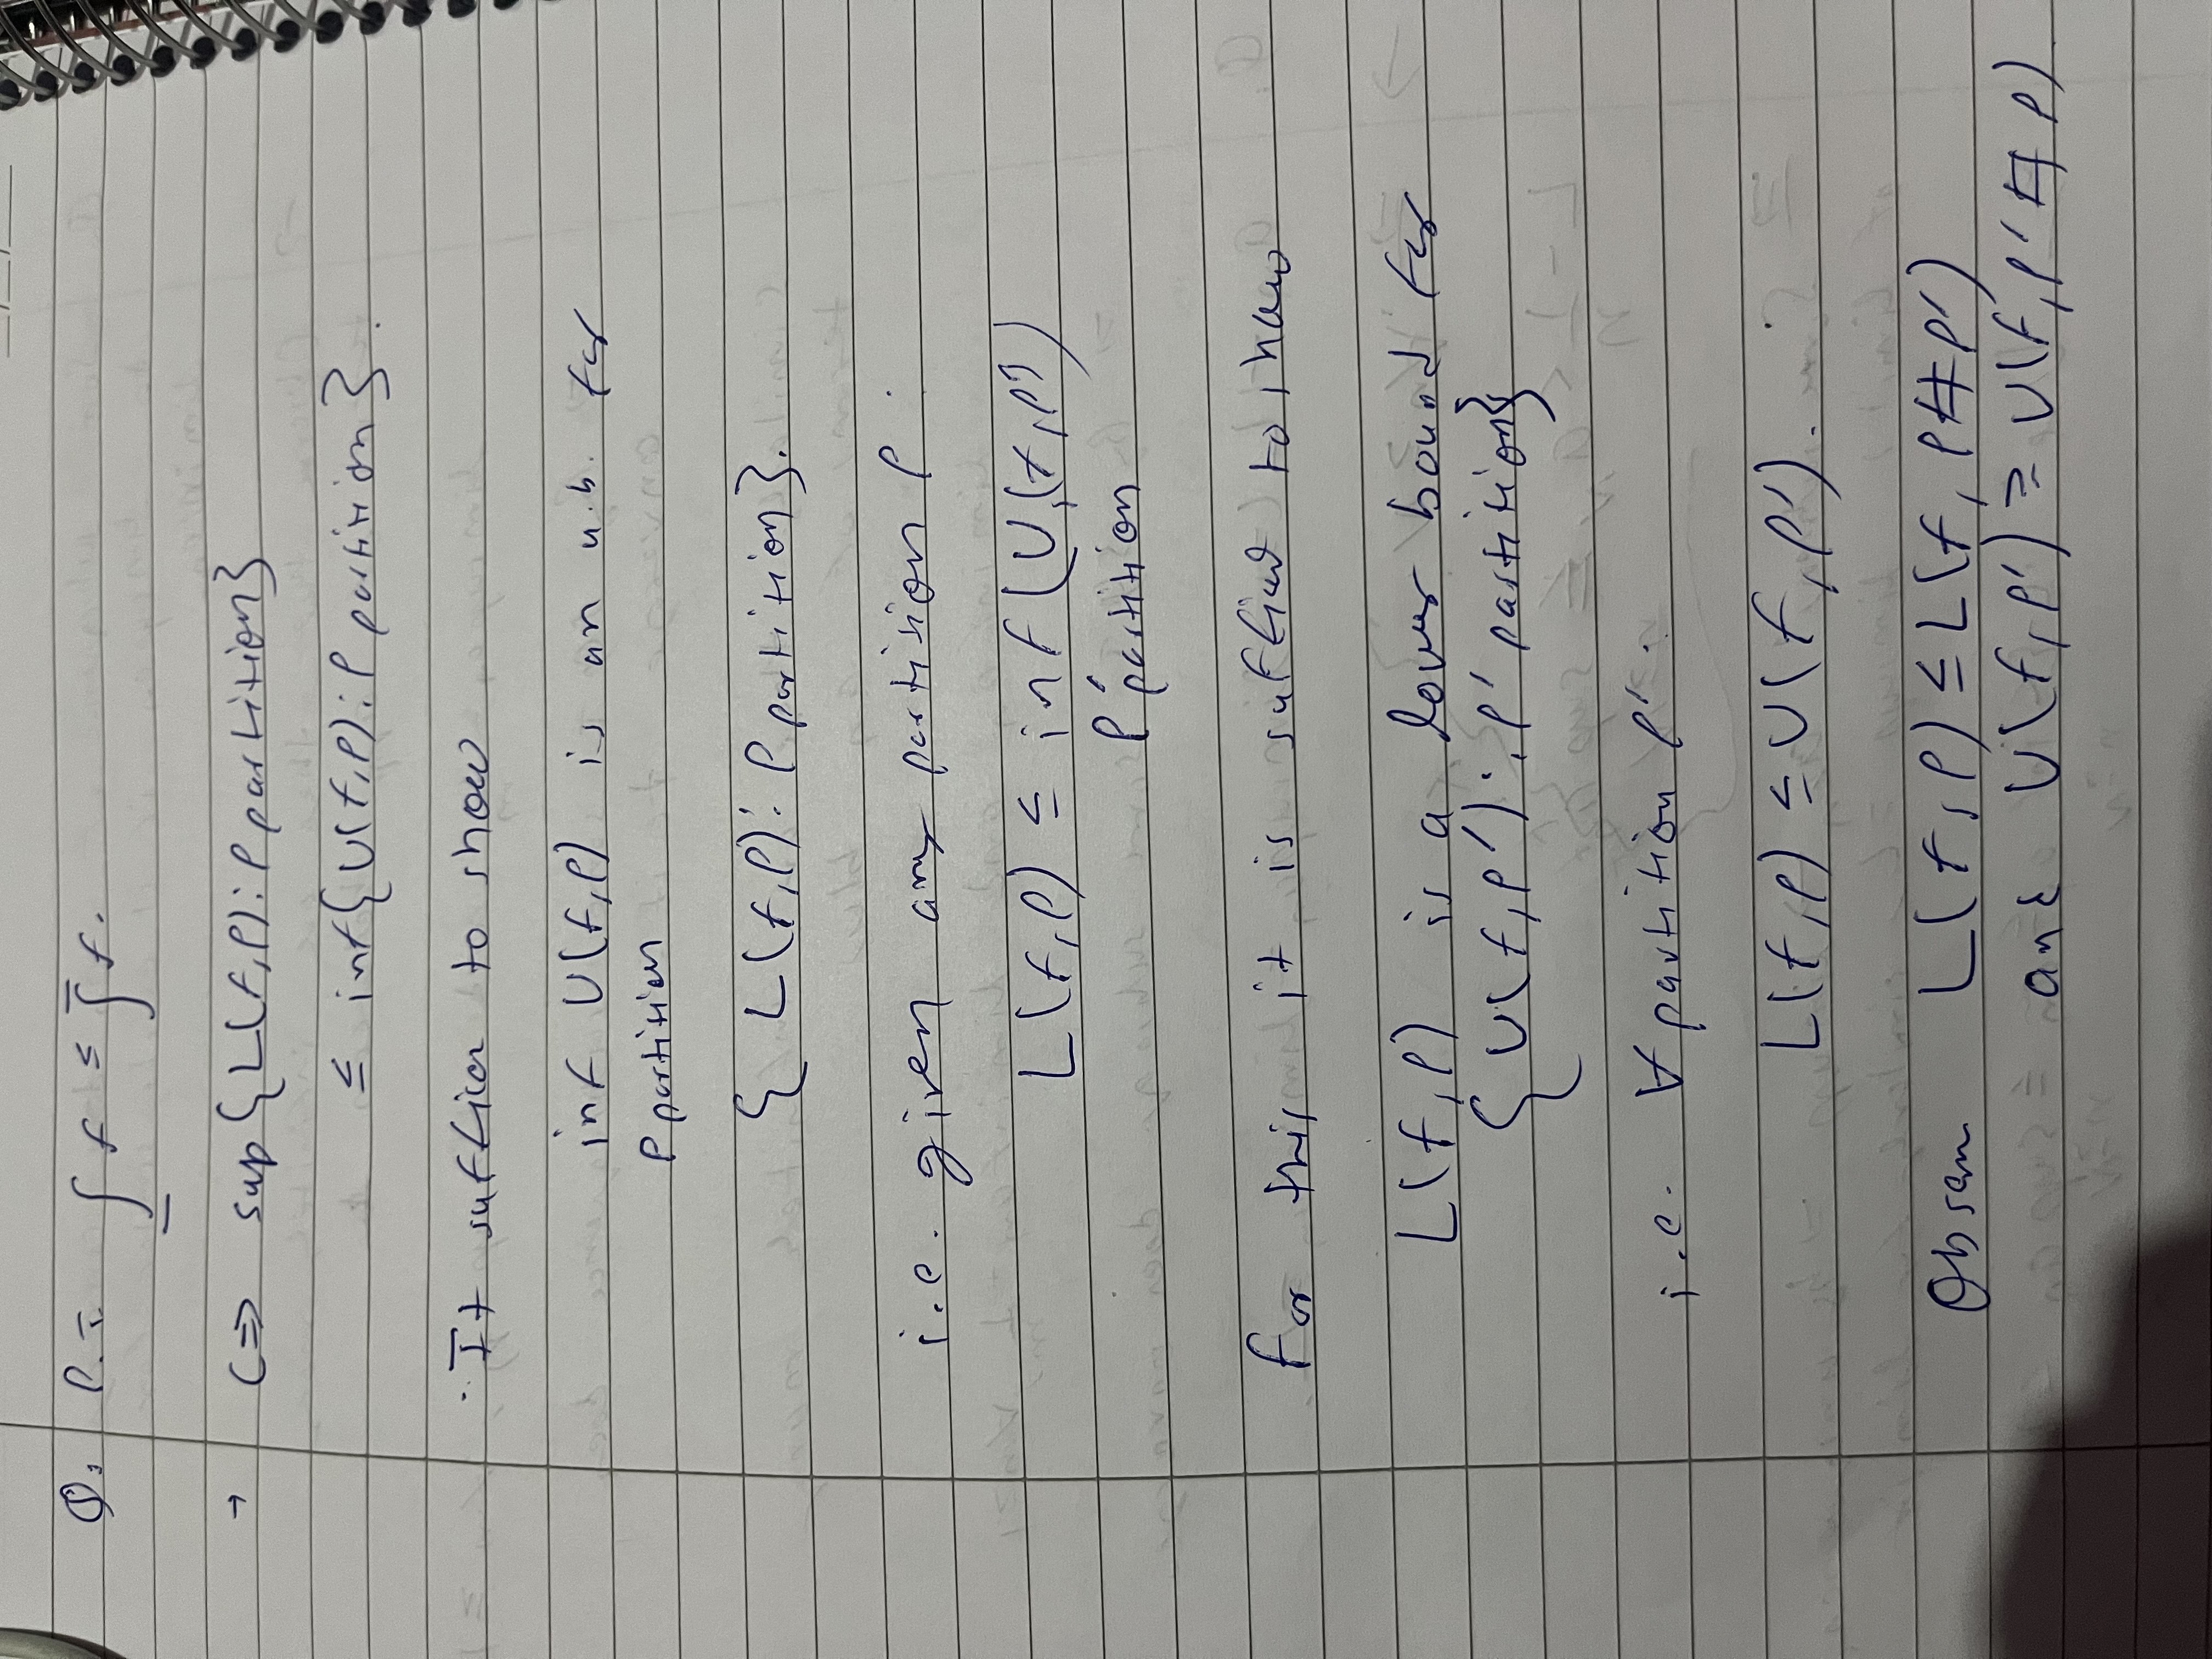 Q. P.T. ∫ f ≤ ∫̅ f.
→ (=> sup{L(f,P): P partition}
≤ inf{U(f,P): P partition}.
It suffices to show
inf U(f,P) is an u.b. for
P partition
{ L(f,P): P partition}.
i.e. given any partition P:
L(f,P) ≤ inf(U(f,P')
P' partition
For this it is sufficient to show
L(f,P) is a lower bound for
{U(f,P'): P' partition}
i.e. ∀ partition P':
L(f,P) ≤ U(f,P').
Observe L(f,P) ≤ L(f, P#P')
and U(f,P') ≥ U(f,P' # P)